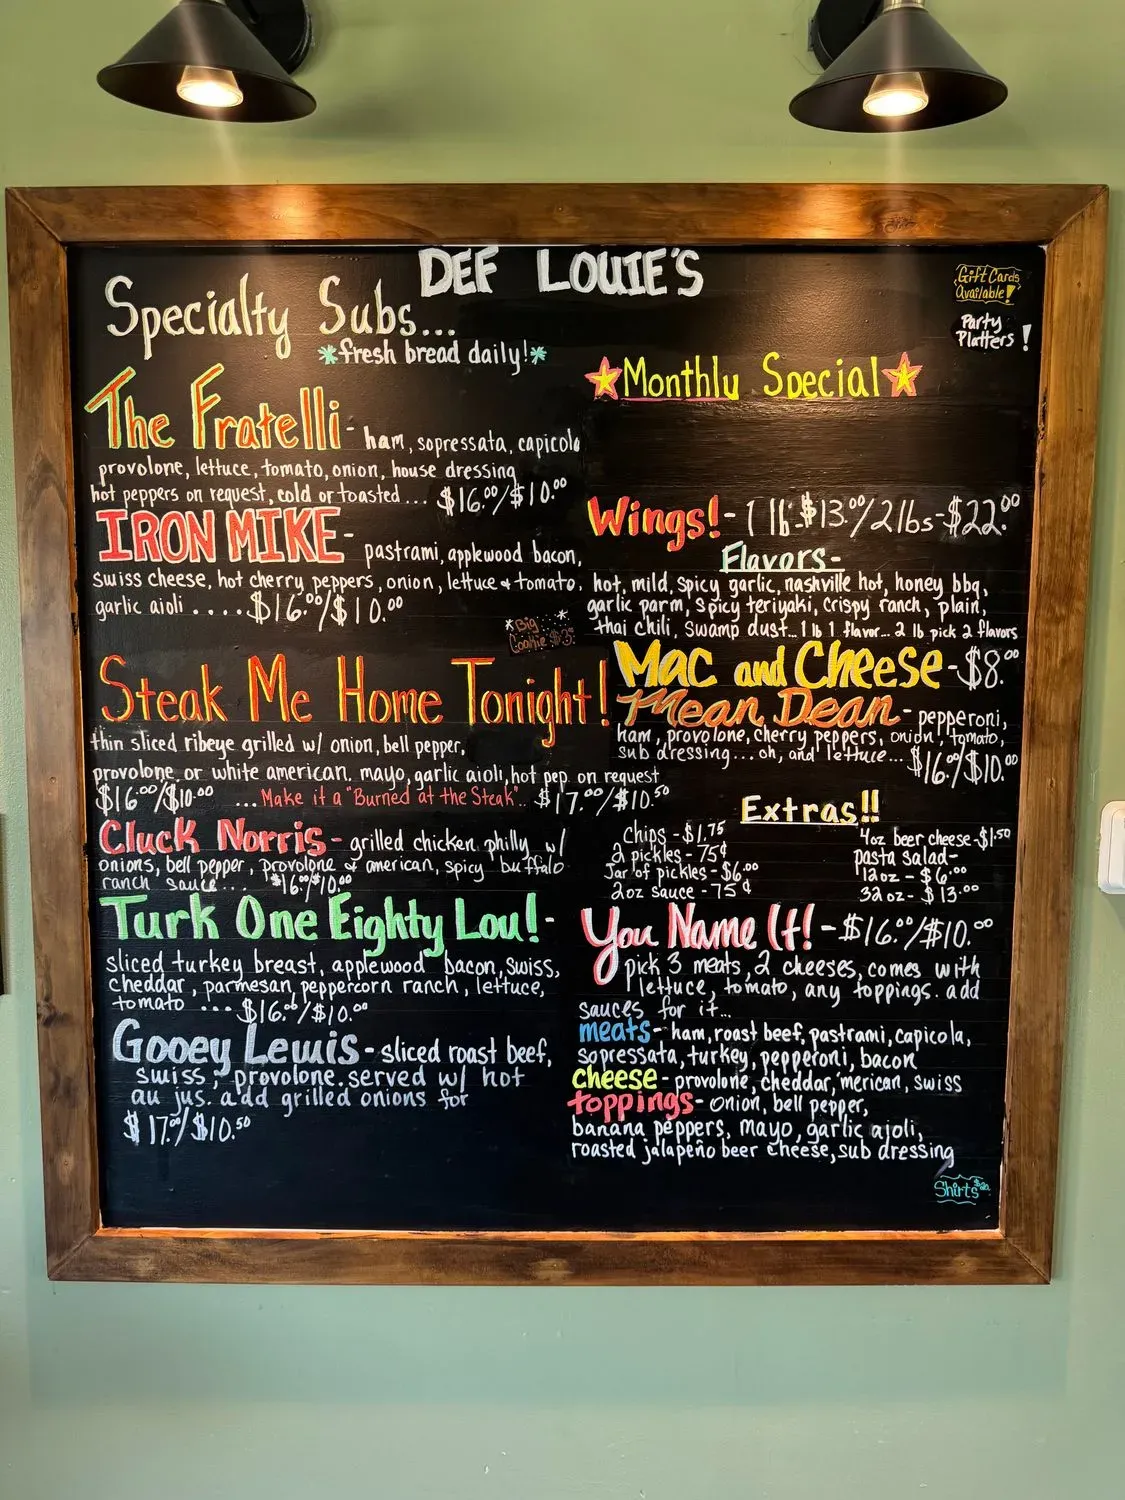 DEF LOUIE'S
Specialty Subs...
*fresh bread daily!*
The Fratelli - ham, sopressata, capicola
provolone, lettuce, tomato, onion, house dressing
hot peppers on request, cold or toasted... $16.00/$10.00
IRON MIKE - pastrami, applewood bacon,
swiss cheese, hot cherry peppers, onion, lettuce + tomato,
garlic aioli ..... $16.00/$10.00
*Big *
Cookie $3
Steak Me Home Tonight!
thin sliced ribeye grilled w/ onion, bell pepper,
provolone or white american. mayo, garlic aioli, hot pep. on request
$16.00/$10.00 ...Make it a "Burned at the Steak"... $17.00/$10.50
Cluck Norris - grilled chicken philly w/
onions, bell pepper, provolone & american, spicy buffalo
ranch sauce... $16.00/$10.00
Turk One Eighty Lou! -
sliced turkey breast, applewood bacon, swiss,
cheddar, parmesan peppercorn ranch, lettuce,
tomato ... $16.00/$10.00
Gooey Lewis - sliced roast beef,
swiss, provolone. served w/ hot
au jus. add grilled onions for
$17.00/$10.50
Gift Cards
Available!
Party
Platters!
Monthly Special
Wings! - 1 lb - $13.00/2 lbs - $22.00
Flavors -
hot, mild, spicy garlic, nashville hot, honey bbq,
garlic parm, spicy teriyaki, crispy ranch, plain,
thai chili, swamp dust... 1 lb 1 flavor... 2 lb pick 2 flavors
Mac and Cheese - $8.00
Mean Dean - pepperoni,
ham, provolone, cherry peppers, onion, tomato,
sub dressing... oh, and lettuce... $16.00/$10.00
Extras!!
Chips - $1.75
2 pickles - 75¢
Jar of pickles - $6.00
2oz sauce - 75¢
4oz beer cheese - $1.50
pasta salad -
12oz - $6.00
32oz - $13.00
You Name It! - $16.00/$10.00
pick 3 meats, 2 cheeses, comes with
lettuce, tomato, any toppings. add
sauces for it...
meats - ham, roast beef, pastrami, capicola,
sopressata, turkey, pepperoni, bacon
cheese - provolone, cheddar, 'merican, swiss
toppings - onion, bell pepper,
banana peppers, mayo, garlic aioli,
roasted jalapeño beer cheese, sub dressing
Shirts $20.